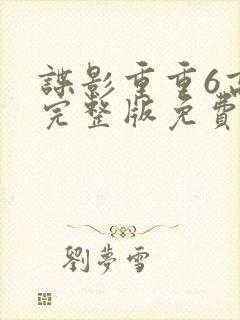 諜影重重6高
完整版免費
劉夢雪